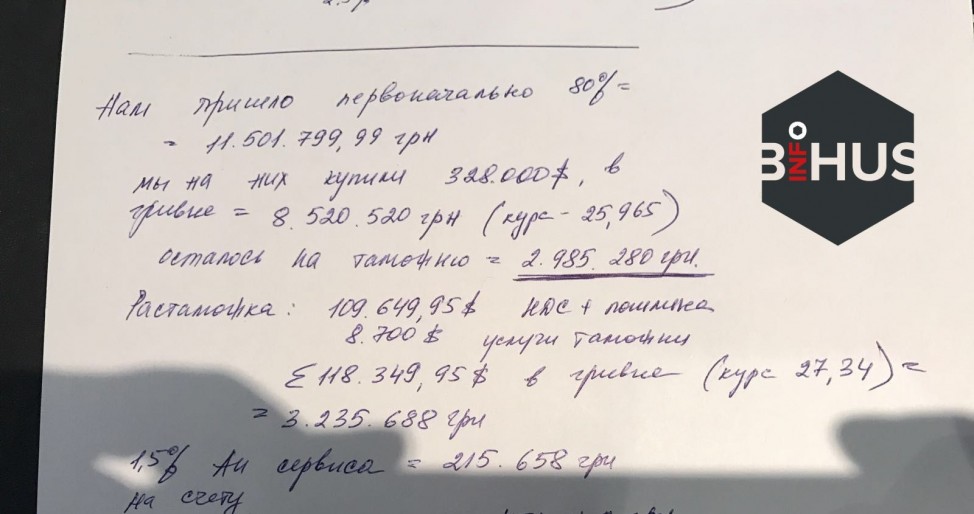 Нам пришло первоначально 80% =
= 11.501.799,99 грн
мы на них купили 328.000$, в
гривне = 8.520.520 грн (курс - 25,965)
осталось на таможню = 2.985.280 грн.
Растаможка: 109.649,95$ НДС + пошлина
8.700$ услуги таможни
Σ 118.349,95$ в гривне (курс 27,34) =
= 3.235.688 грн
1,5% Аи сервиса = 215.658 грн
на счету
BIHUS
INFO